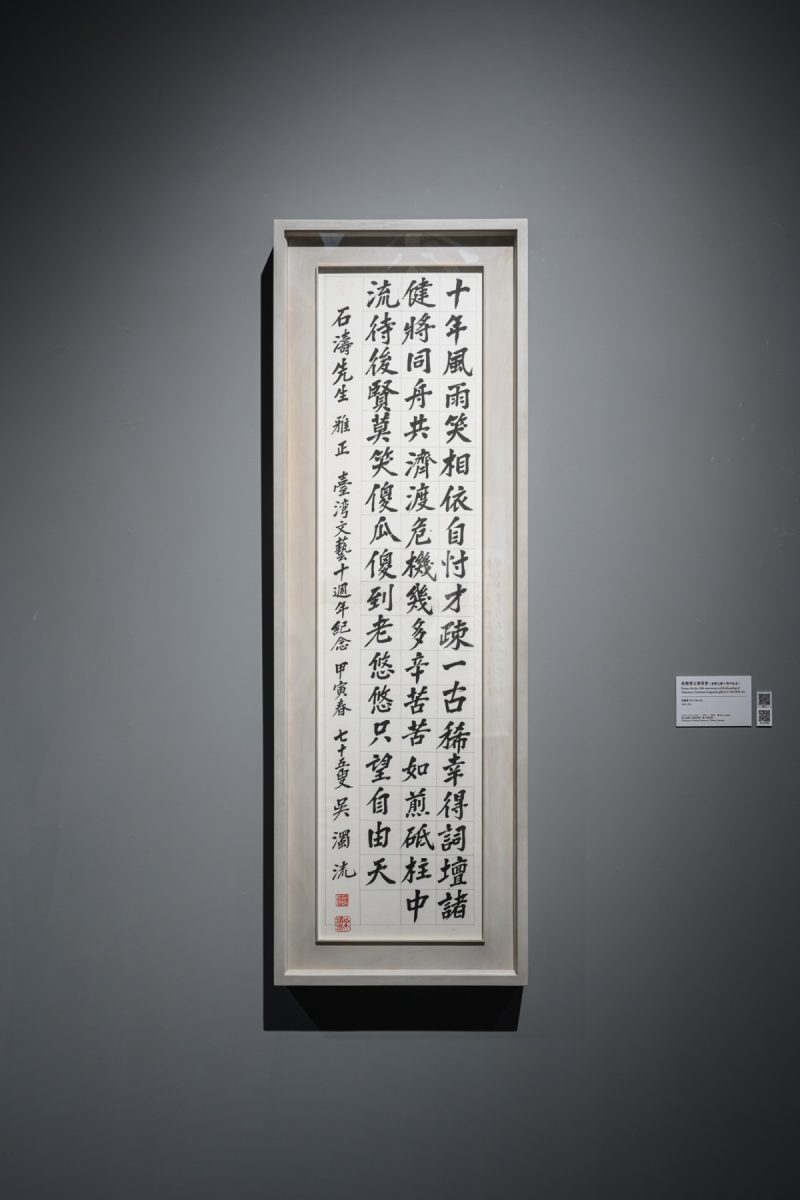 十年風雨笑相依自忖才疎一古稀幸得詞壇諸
健將同舟共濟渡危機幾多辛苦苦如煎砥柱中
流待後賢莫笑傻瓜傻到老悠悠只望自由天
石濤先生 雅正 臺湾文藝十週年紀念 甲寅春 七十五叟 吳濁流